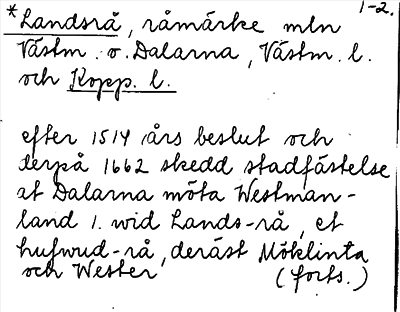 1-2.
*Landsrå, råmärke mln
Västm. o. Dalarna, Västm. l.
och Kopp. l.
efter 1514 års beslut och
derpå 1662 skedd stadfästelse
at Dalarna möta Westman-
land 1. wid Lands-rå, et
hufwud-rå, deräst Möklinta
och Wester (forts.)